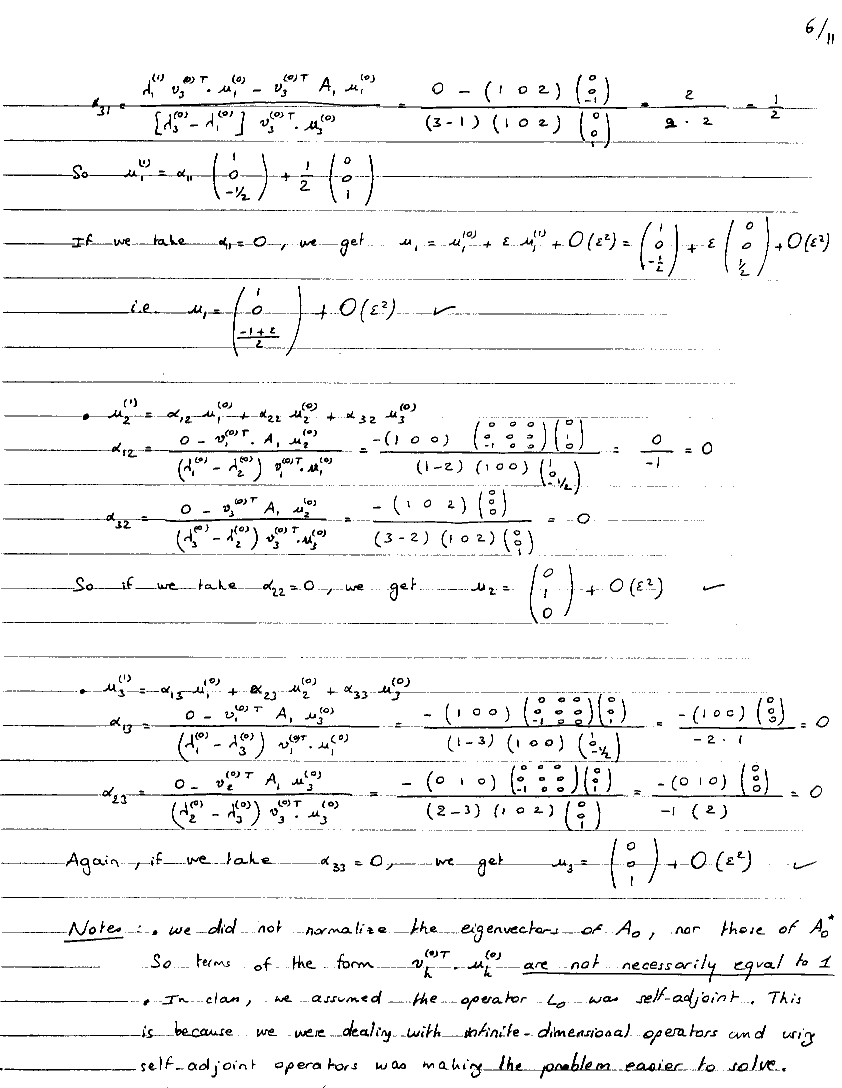 6/11
α₃₁ = (λ₁⁽¹⁾ v₃⁽⁰⁾ᵀ · u₁⁽⁰⁾ − v₃⁽⁰⁾ᵀ A₁ u₁⁽⁰⁾) / ([λ₃⁽⁰⁾ − λ₁⁽⁰⁾] v₃⁽⁰⁾ᵀ · u₃⁽⁰⁾) = (0 − (1 0 2) (0 0 −1)) / ((3−1) (1 0 2) (0 0 1)) = 2 / (2 · 2) = 1/2
So u₁⁽¹⁾ = α₁₁ (1 0 −1/2) + 1/2 (0 0 1)
If we take α₁₁=0, we get u₁ = u₁⁽⁰⁾ + ε u₁⁽¹⁾ + O(ε²) = (1 0 −1/2) + ε (0 0 1/2) + O(ε²)
i.e. u₁ = (1 0 (−1+ε)/2) + O(ε²) ✓
• u₂⁽¹⁾ = α₁₂ u₁⁽⁰⁾ + α₂₂ u₂⁽⁰⁾ + α₃₂ u₃⁽⁰⁾
α₁₂ = (0 − v₁⁽⁰⁾ᵀ · A₁ u₂⁽⁰⁾) / ((λ₁⁽⁰⁾ − λ₂⁽⁰⁾) v₁⁽⁰⁾ᵀ · u₁⁽⁰⁾) = (−(1 0 0) (0 0 0 / 0 0 0 / −1 0 0) (0 1 0)) / ((1−2) (1 0 0) (1 0 −1/2)) = 0 / −1 = 0
α₃₂ = (0 − v₃⁽⁰⁾ᵀ A₁ u₂⁽⁰⁾) / ((λ₃⁽⁰⁾ − λ₂⁽⁰⁾) v₃⁽⁰⁾ᵀ · u₃⁽⁰⁾) = (−(1 0 2) (0 0 0)) / ((3−2) (1 0 2) (0 0 1)) = 0
So if we take α₂₂=0, we get u₂ = (0 1 0) + O(ε²) ✓
• u₃⁽¹⁾ = α₁₃ u₁⁽⁰⁾ + α₂₃ u₂⁽⁰⁾ + α₃₃ u₃⁽⁰⁾
α₁₃ = (0 − v₁⁽⁰⁾ᵀ A₁ u₃⁽⁰⁾) / ((λ₁⁽⁰⁾ − λ₃⁽⁰⁾) v₁⁽⁰⁾ᵀ · u₁⁽⁰⁾) = (−(1 0 0) (0 0 0 / 0 0 0 / −1 0 0) (0 0 1)) / ((1−3) (1 0 0) (1 0 −1/2)) = (−(1 0 0) (0 0 0)) / (−2 · 1) = 0
α₂₃ = (0 − v₂⁽⁰⁾ᵀ A₁ u₃⁽⁰⁾) / ((λ₂⁽⁰⁾ − λ₃⁽⁰⁾) v₃⁽⁰⁾ᵀ · u₃⁽⁰⁾) = (−(0 1 0) (0 0 0 / 0 0 0 / −1 0 0) (0 0 1)) / ((2−3) (1 0 2) (0 0 1)) = (−(0 1 0) (0 0 0)) / (−1 (2)) = 0
Again, if we take α₃₃ = 0, we get u₃ = (0 0 1) + O(ε²) ✓
Notes : • we did not normalize the eigenvectors of A₀, nor those of A₀*
So terms of the form vₖ⁽⁰⁾ᵀ · uₖ⁽⁰⁾ are not necessarily equal to 1
• In class, we assumed the operator L₀ was self-adjoint. This
is because we were dealing with infinite-dimensional operators and using
self-adjoint operators was making the problem easier to solve.